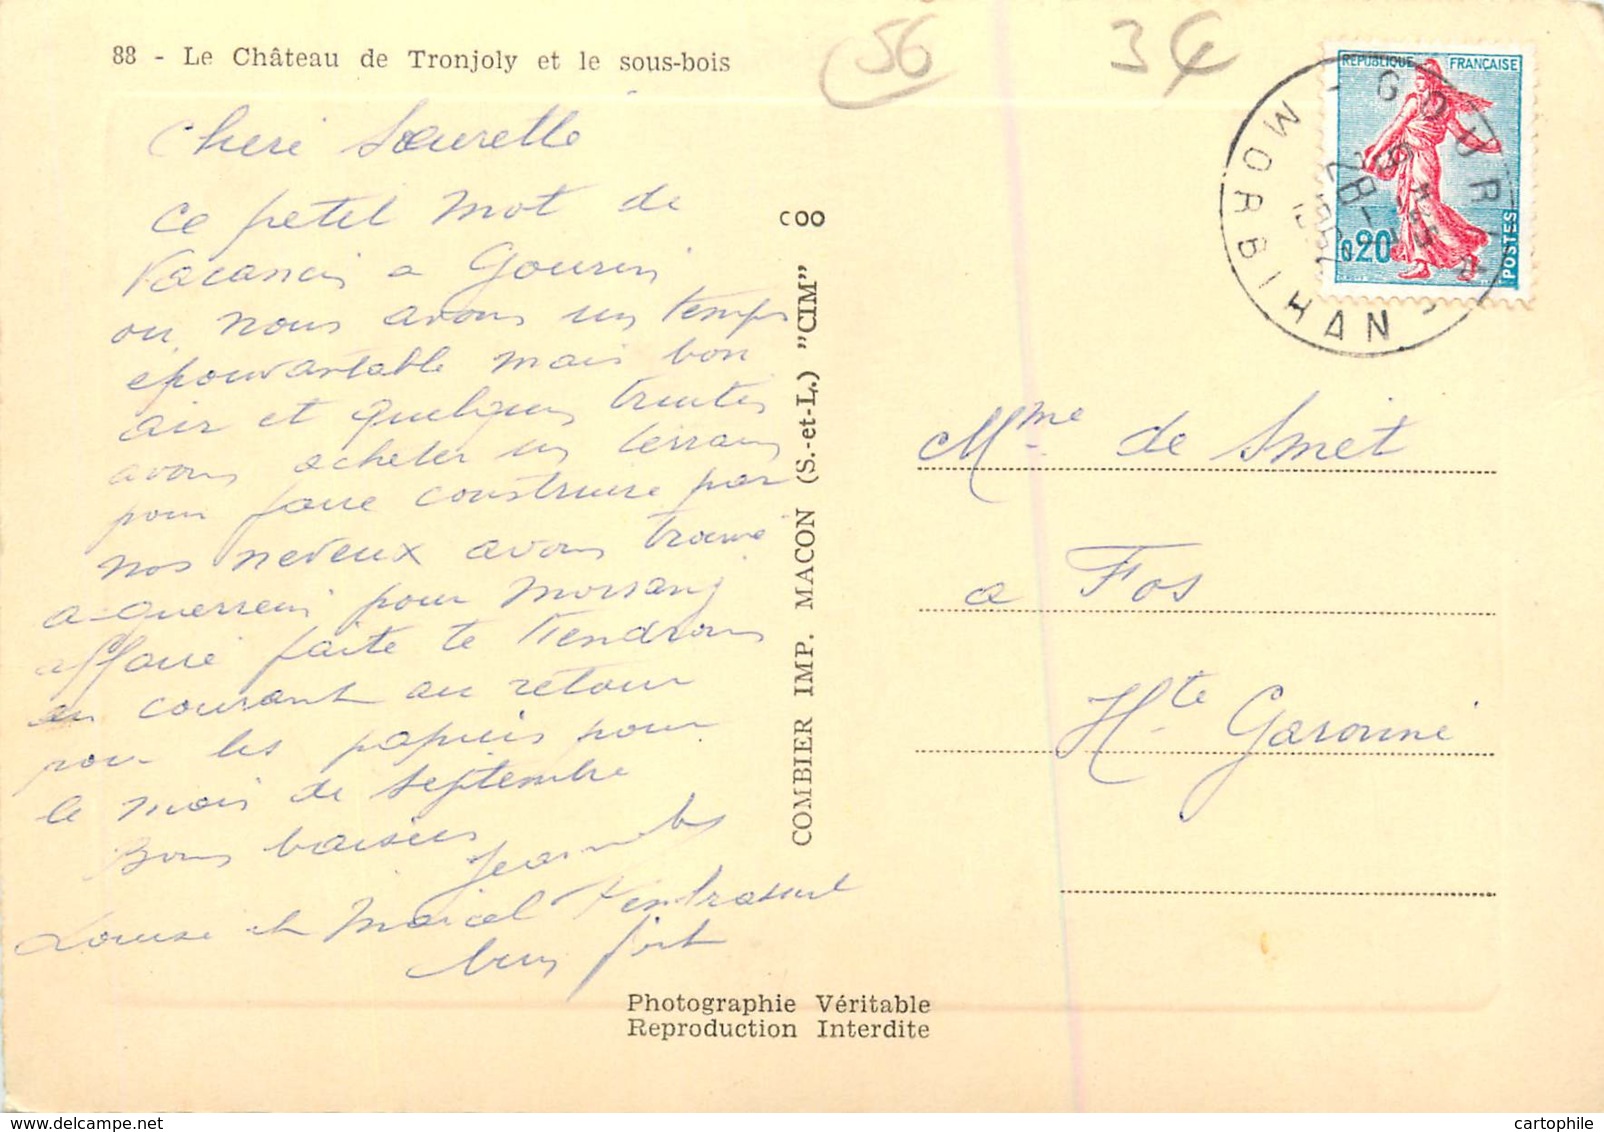 88 - Le Château de Tronjoly et le sous-bois
56
3€
Cheri Sœurette
Ce petit mot de
Vacances a Gourin
ou nous avons un temps
epouvantable mais bon
air et quelques truites
avons acheter un terrain
pour faire construire par
nos neveux avons trouvé
a guerreni pour Morsang
affaire faite te Tiendrons
au courant au retour
pour les papiers pour
le mois de septembre
Bons baisers
Louise et Marcel
bien fort
COMBIER IMP. MACON (S.-et-L.) "CIM"
C OO
REPUBLIQUE FRANÇAISE
0,20
POSTES
GOURIN
MORBIHAN
Mme de Smet
a Fos
Hte Garonne
Photographie Véritable
Reproduction Interdite
cartophile.com